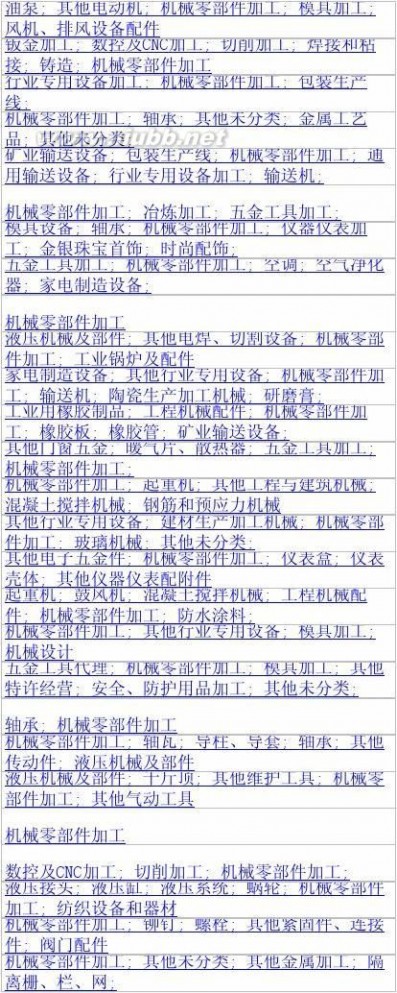 油泵; 其他电动机; 机械零部件加工; 模具加工;
风机、排风设备配件
钣金加工; 数控及CNC加工; 切削加工; 焊接和粘
接; 铸造; 机械零部件加工
行业专用设备加工; 机械零部件加工; 包装生产
线;
机械零部件加工; 轴承; 其他未分类; 金属工艺
品; 其他未分类;
矿业输送设备; 包装生产线; 机械零部件加工; 通
用输送设备; 行业专用设备加工; 输送机;
机械零部件加工; 冶炼加工; 五金工具加工;
模具设备; 轴承; 机械零部件加工; 仪器仪表加
工; 金银珠宝首饰; 时尚配饰;
五金工具加工; 机械零部件加工; 空调; 空气净化
器; 家电制造设备;
机械零部件加工
液压机械及部件; 其他电焊、切割设备; 机械零部
件加工; 工业锅炉及配件
家电制造设备; 其他行业专用设备; 机械零部件加
工; 输送机; 陶瓷生产加工机械; 研磨膏;
工业用橡胶制品; 工程机械配件; 机械零部件加
工; 橡胶板; 橡胶管; 矿业输送设备;
其他门窗五金; 暖气片、散热器; 五金工具加工;
机械零部件加工;
机械零部件加工; 起重机; 其他工程与建筑机械;
混凝土搅拌机械; 钢筋和预应力机械
其他行业专用设备; 建材生产加工机械; 机械零部
件加工; 玻璃机械; 其他未分类;
其他电子五金件; 机械零部件加工; 仪表盒; 仪表
壳体; 其他仪器仪表配附件
起重机; 鼓风机; 混凝土搅拌机械; 工程机械配
件; 机械零部件加工; 防水涂料;
机械零部件加工; 其他行业专用设备; 模具加工;
机械设计
五金工具代理; 机械零部件加工; 模具加工; 其他
特许经营; 安全、防护用品加工; 其他未分类;
轴承; 机械零部件加工
机械零部件加工; 轴瓦; 导柱、导套; 轴承; 其他
传动件; 液压机械及部件
液压机械及部件; 千斤顶; 其他维护工具; 机械零
部件加工; 其他气动工具
机械零部件加工
数控及CNC加工; 切削加工; 机械零部件加工;
液压接头; 液压缸; 液压系统; 蜗轮; 机械零部件
加工; 纺织设备和器材
机械零部件加工; 铆钉; 螺栓; 其他紧固件、连接
件; 阀门配件
机械零部件加工; 其他未分类; 其他金属加工; 隔
离栅、栏、网;